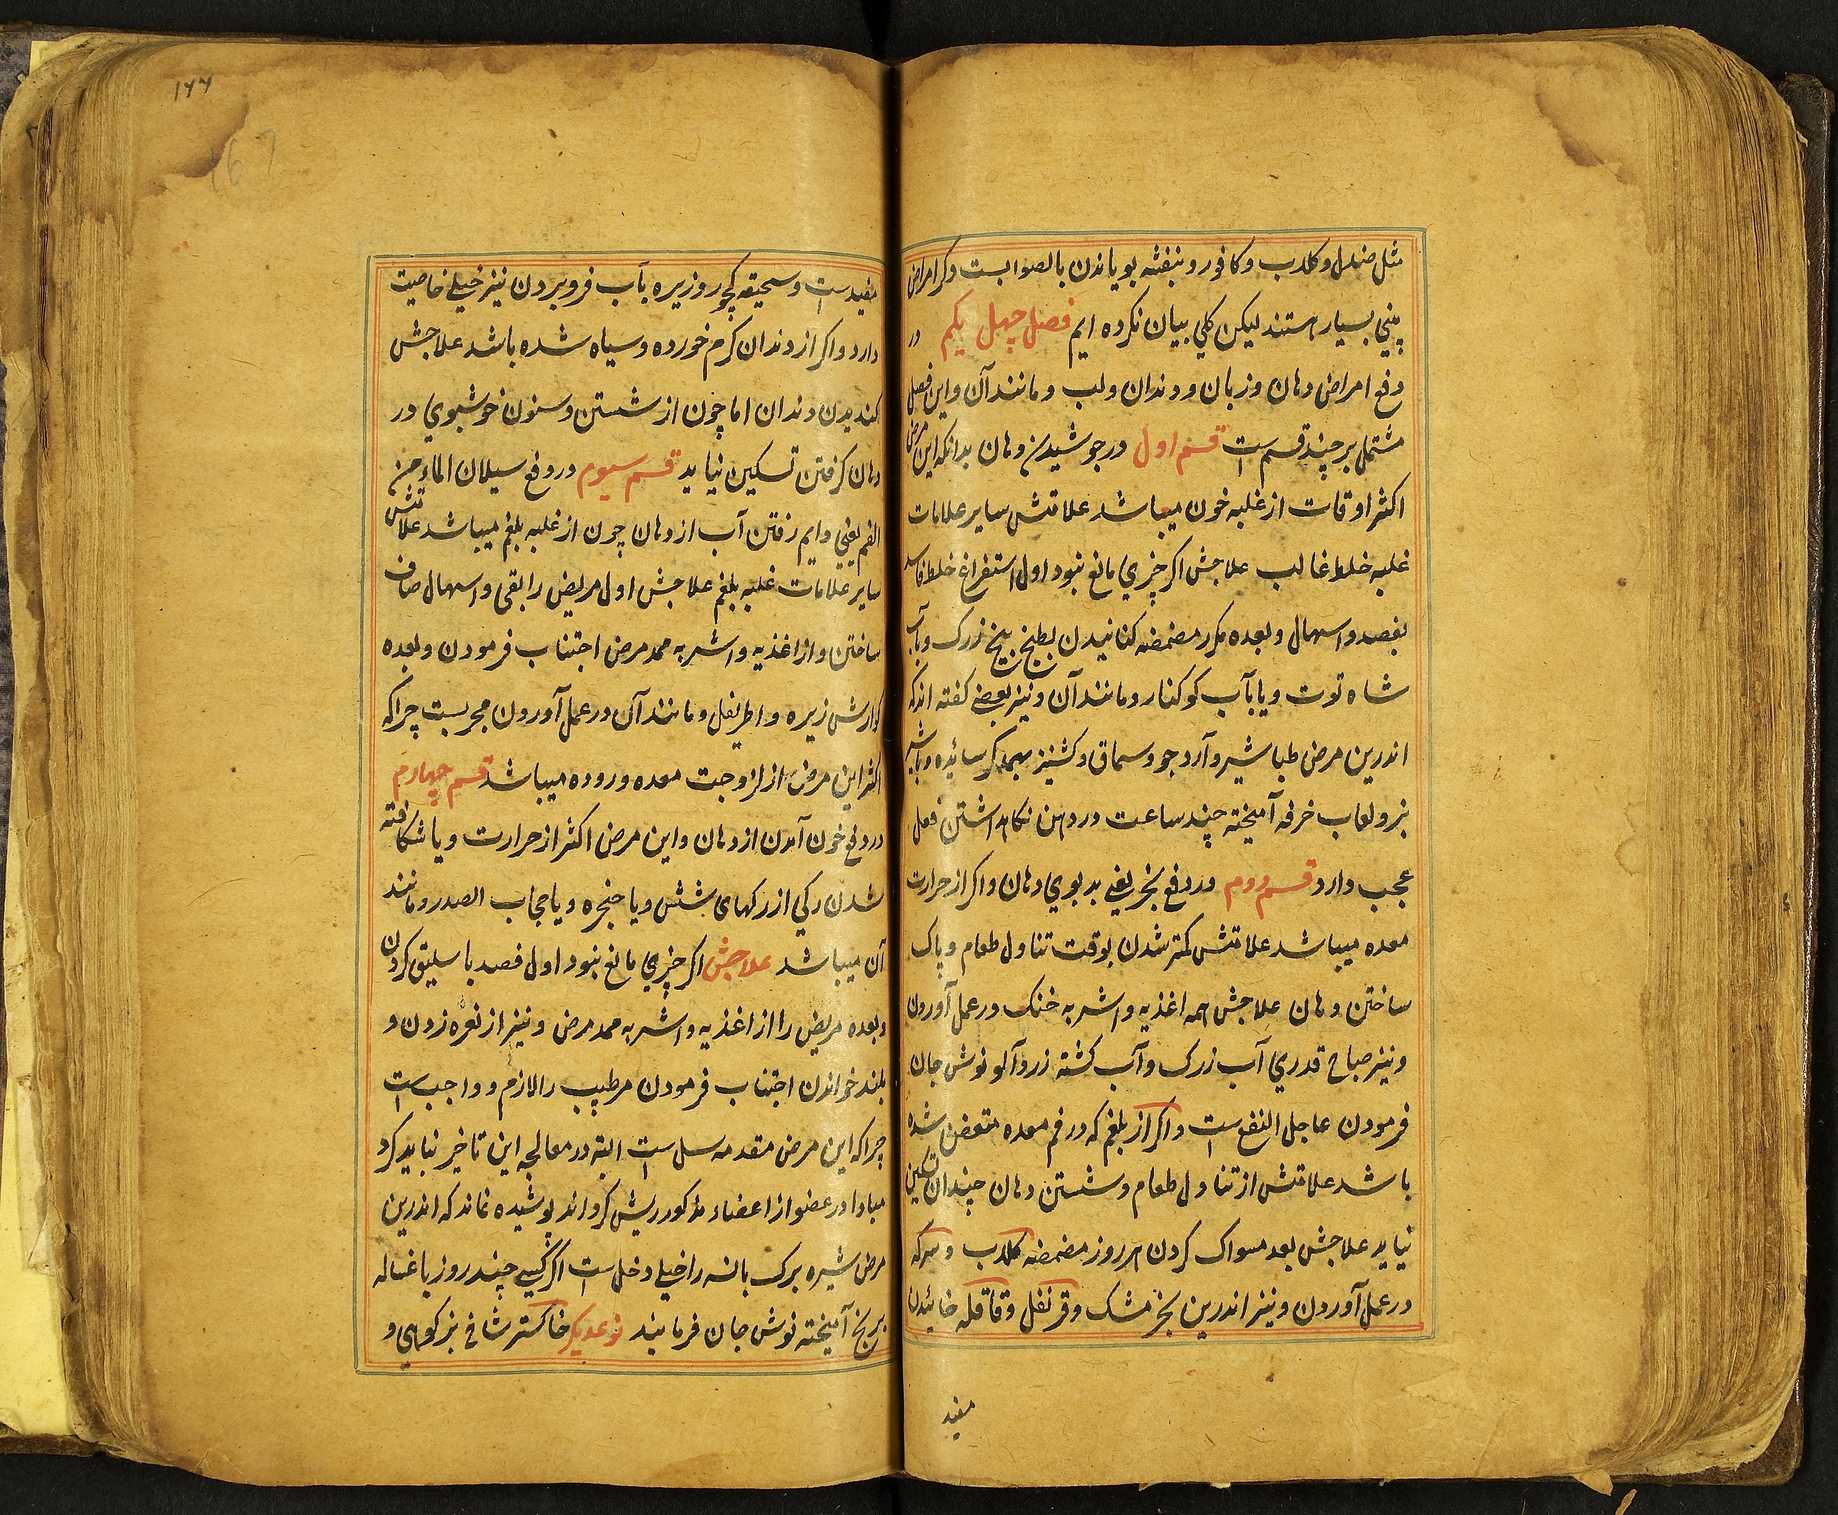 مثل صندل و کلاب و کافور و بنفشه بویاندن بالصوابست و کر امراض
بینی بسیار هستند لیکن کلی بیان نکرده ایم فصل چهل یکم در
دفع امراض دهان و زبان و دندان و لب و مانند آن و این فصل
مشتمل بر چند قسم است قسم اول در جوشیدن دهان بدانکه این مرض
اکثر اوقات از غلبه خون میباشد علامتش سایر علامات
غلبه خلط غالب علاجش اکر چیزی مانع نبود اول استفراغ خلط فاسد
بفصد و اسهال و بعده مکرر مضمضه کنانیدن بطبخ بیخ زرک و بآب
شاه توت و یا بآب کوکنار و مانند آن و نیز بعضی کفته اند که
اندرین مرض طباشیر و آرد جو و سماق و کشنیز بهمدکر سائیده و باشیر
بز و لعاب خرفه آمیخته چند ساعت در دهن نکاهداشتن فعل
عجب دارد قسم دوم در دفع بخر یعنی بدبوی دهان و اکر از حرارت
معده میباشد علامتش کمتر شدن بوقت تناول طعام و پاک
ساختن دهان علاجش همه اغذیه و اشربه خنک در عمل آوردن
و نیز صباح قدری آب زرک و آب کشته زردآلو نوش جان
فرمودن عاجل النفع است و اکر از بلغم که در فم معده متعفن شده
باشد علامتش از تناول طعام و شستن دهان چندان تسکین
نیاید علاجش بعد مسواک کردن هر روز مضمضه کلاب و سرکه
در عمل آوردن و نیز اندرین بخر مشک و قرنفل و قاقله خائیدن
مفید
۱۶۶
167
مفیدست و سحیقه کچور و زیره بآب فرو بردن نیز خیلی خاصیت
دارد و اکر از دندان کرم خورده و سیاه شده باشد علاجش
کندیدن دندان اما چون از شستن و سنون خوشبوی در
دهان کرفتن تسکین نیاید قسم سیوم در دفع سیلان الماء من
الفم یعنی دایم رفتن آب از دهان چون از غلبه بلغم میباشد علامتش
سایر علامات غلبه بلغم علاجش اول مریض را بقی و اسهال صاف
ساختن و از اغذیه و اشربه ممد مرض اجتناب فرمودن و بعده
کوارش زیره و اطریفل و مانند آن در عمل آوردن مجربست چراکه
اکثر این مرض از لزوجت معده و روده میباشد قسم چهارم
در دفع خون آمدن از دهان و این مرض اکثر از حرارت و یا شکافته
شدن رکی از رکهای شش و یا حنجره و یا حجاب الصدر و مانند
آن میباشد علاجش اکر چیزی مانع نبود اول فصد باسلیق کردن
و بعده مریض را از اغذیه و اشربه ممد مرض و نیز از نعره زدن و
بلند خواندن اجتناب فرمودن مر طبیب را لازم و واجب است
چراکه این مرض مقدمه سل است البته در معالجه این تاخیر نباید کرد
مبادا در عضو از اعضاء مذکور ریش کرداند پوشیده نماند که اندرین
مرض شیره برک بانسه را خیلی دخل است اکر کسی چند روز با غساله
برنج آمیخته نوش جان فرمایند نوعدیکر خاکستر شاخ بز کوهی و